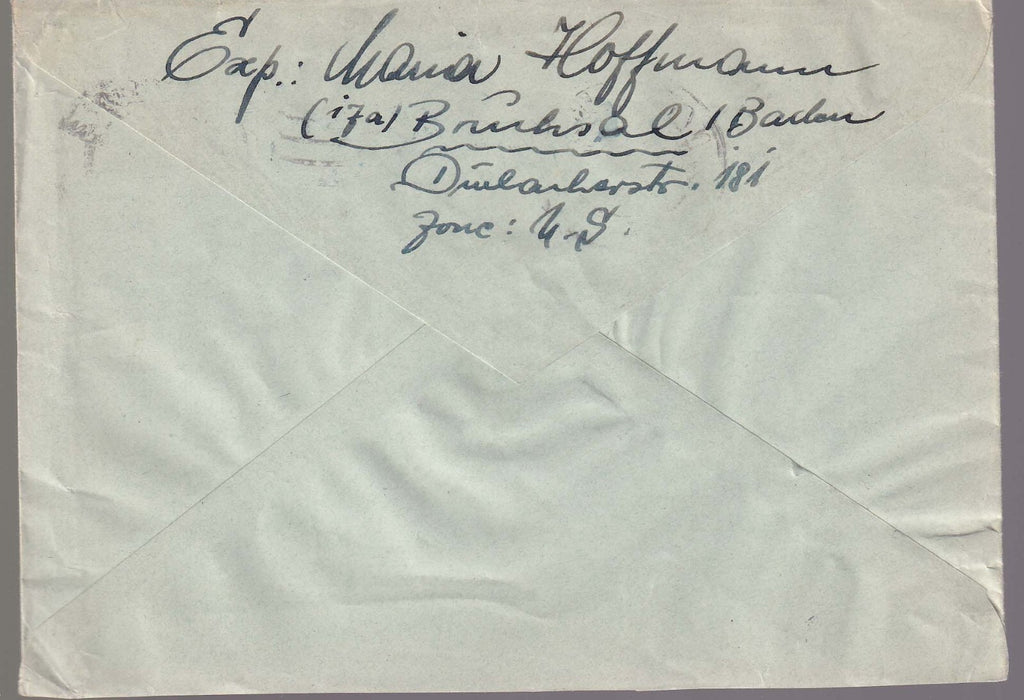 Exp.: Maria Hoffmann
(17a) Bruchsal / Baden
Durlacherstr. 181
Zone: U-S.